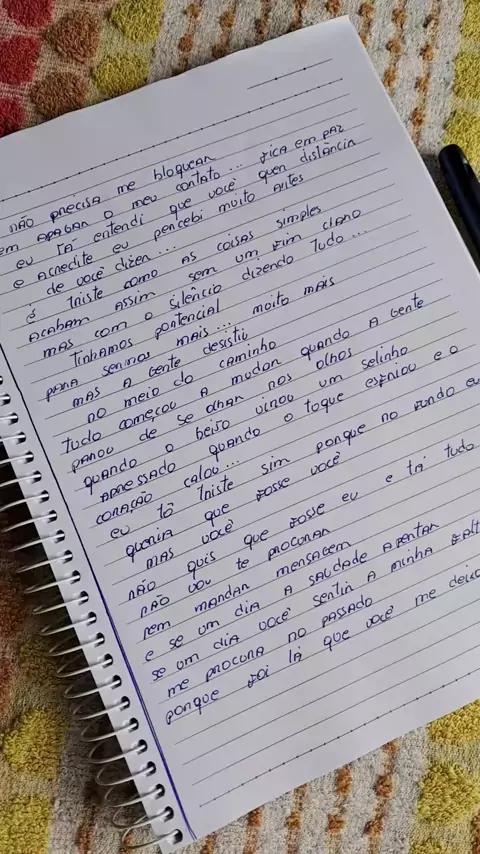 não precisa me bloquear
em apagar o meu contato... fica em paz
eu já entendi que você quer distância
e acredite eu percebi muito antes
de você dizer...
é triste como as coisas simples
acabam assim sem um fim claro
mas com o silêncio dizendo tudo...
tinhamos pontencial
para sermos mais... muito mais
mas a gente desistiu
no meio do caminho
tudo começou a mudar quando a gente
parou de se olhar nos olhos
quando o beijo virou um selinho
apressado quando o toque esfriou e o
coração calou...
eu tô triste sim porque no fundo eu
queria que fosse você
mas você
não quis que fosse eu e tá tudo
não vou te procurar
nem mandar mensagem
e se um dia a saudade apertar
se um dia você sentir a minha falt
me procura no passado
porque foi lá que você me deixo